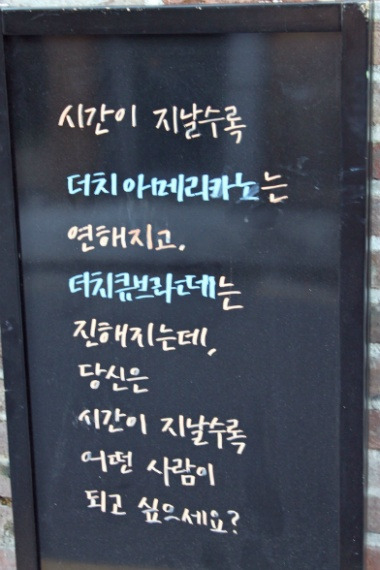 시간이 지날수록
더치아메리카노는
연해지고,
더치큐브라떼는
진해지는데,
당신은
시간이 지날수록
어떤 사람이
되고 싶으세요?